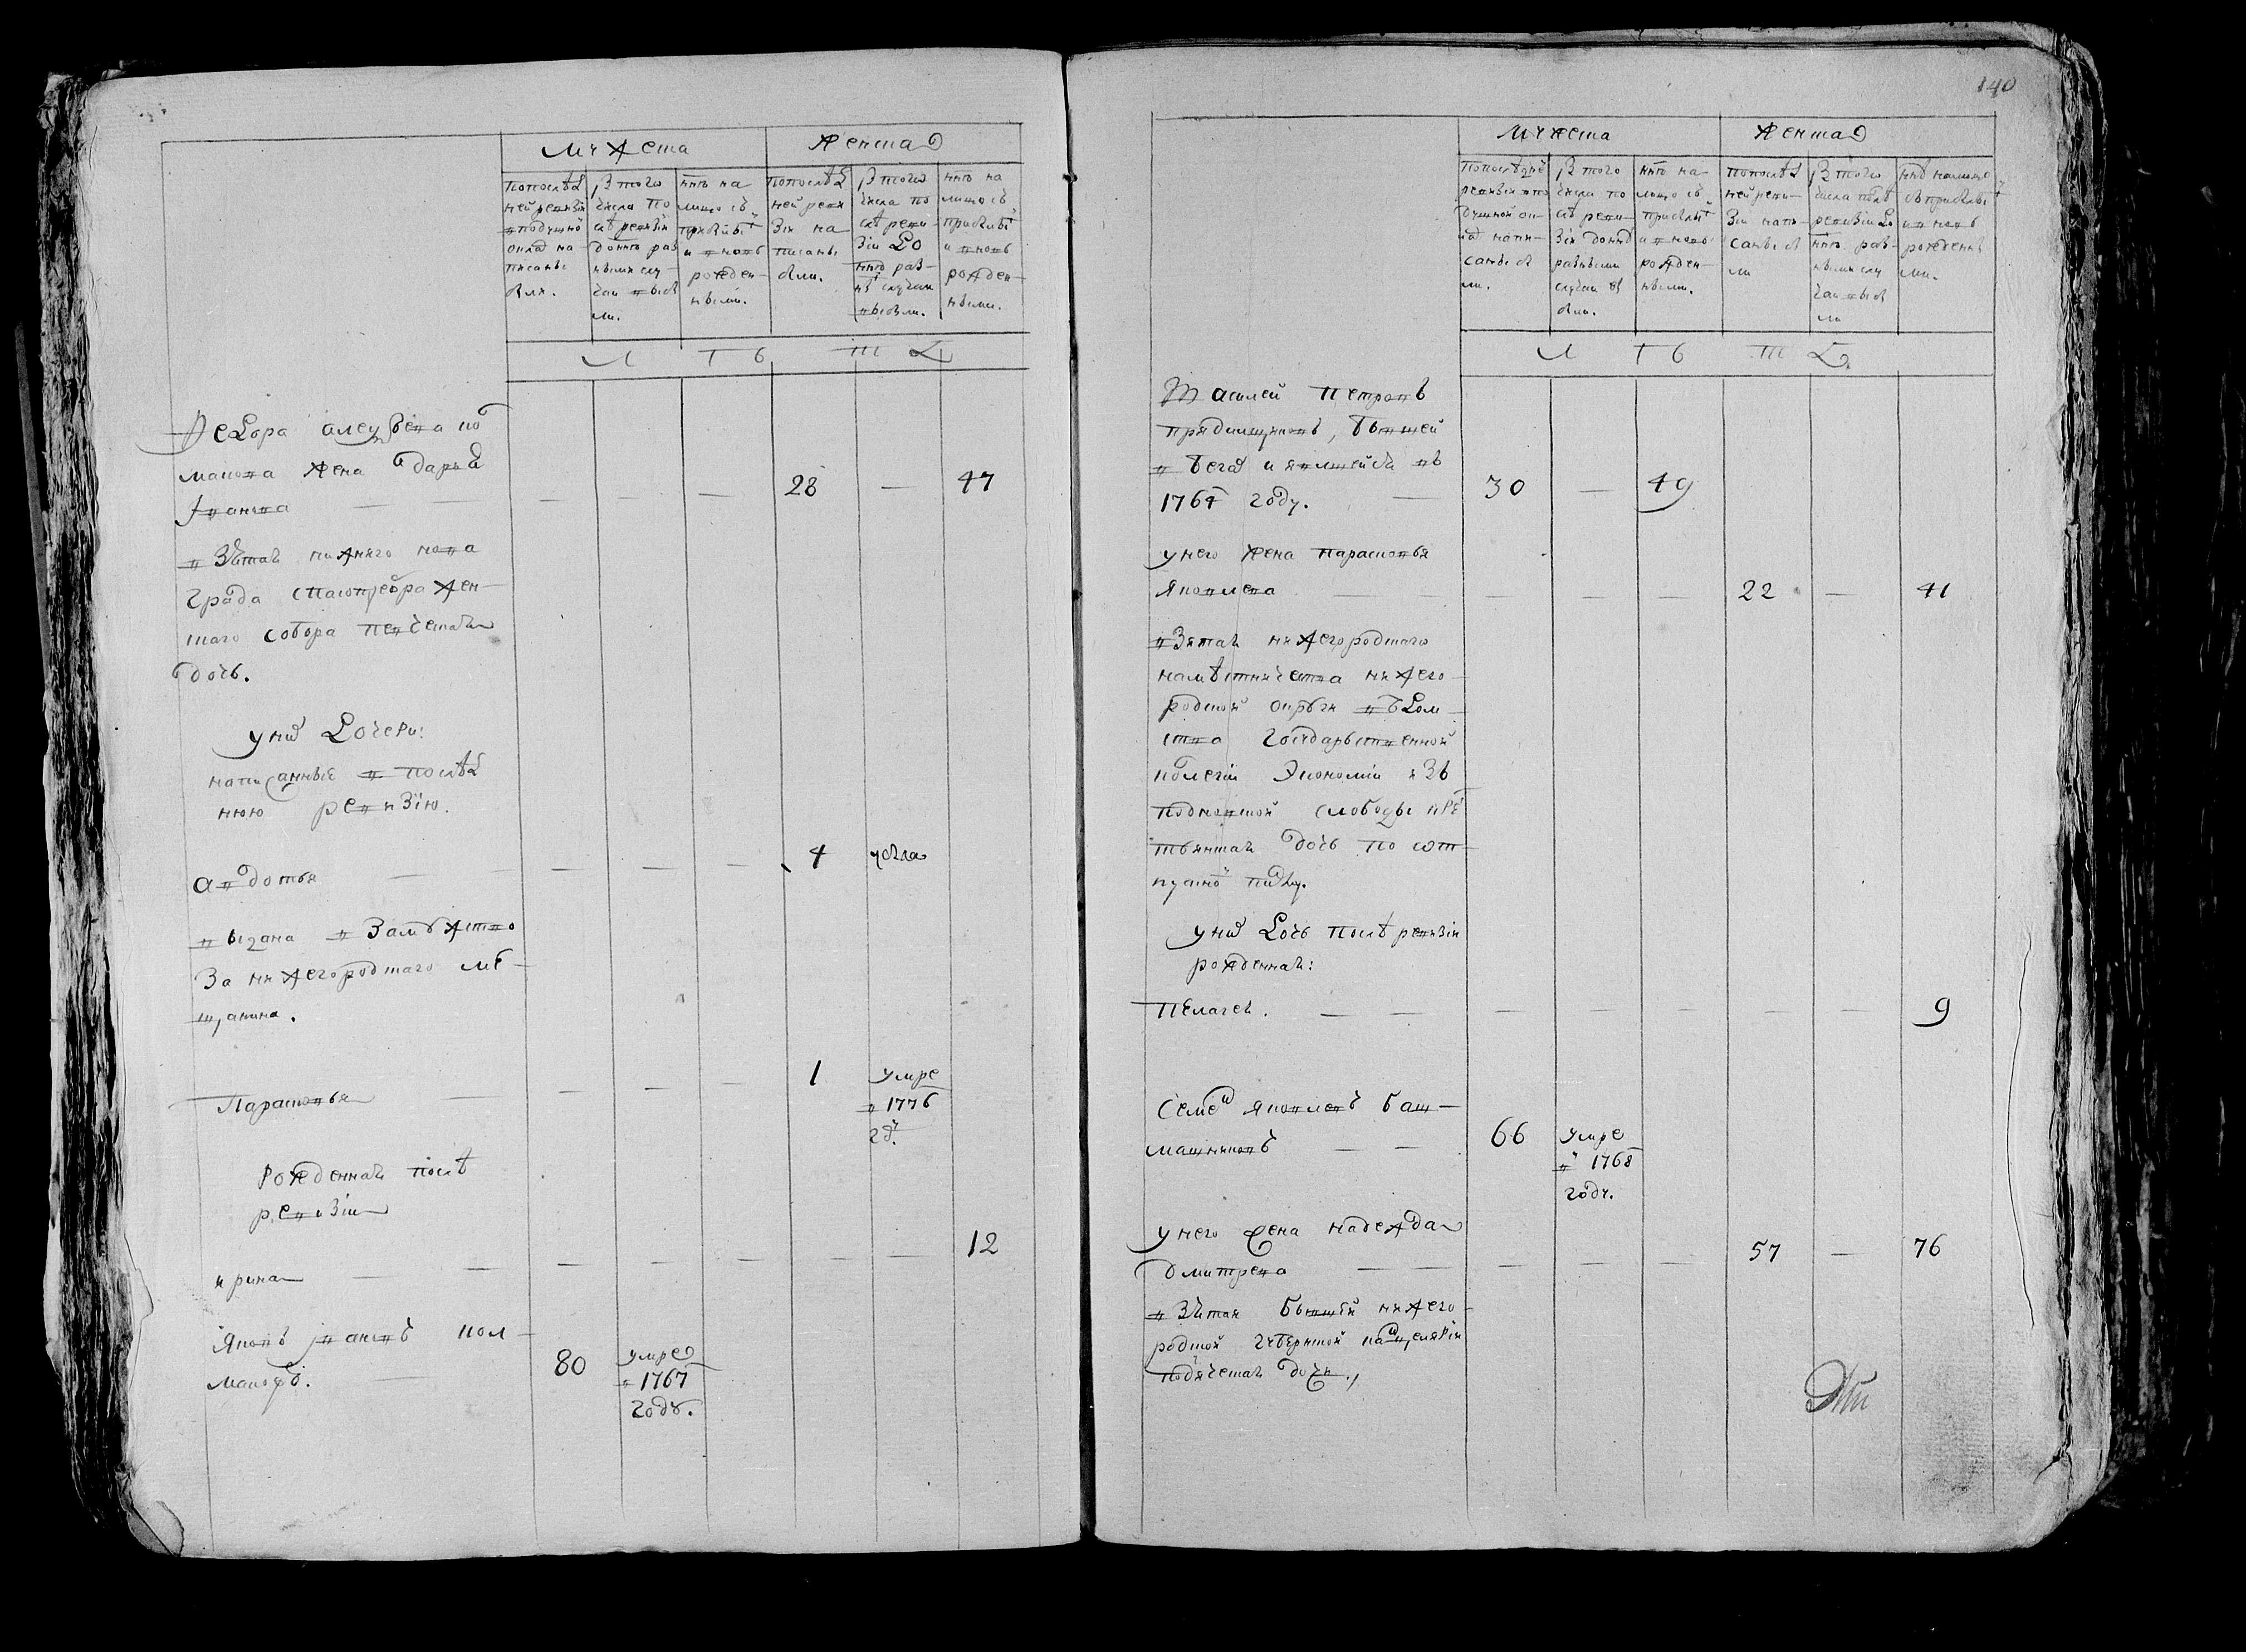 140
Мужеска
Женска
по послѣд
ней ревизіи
в подушной
оклад на
писаны
были.
Из того
числа по
слѣ ревизіи
до нн҃ѣ раз
ными слу-
чаи выбы
ли.
нн҃ѣ на
лицо съ
прибылы
и вновь
рожден-
ными.
по послѣд
ней реви
зіи на
писаны
были.
Из того
числа по
слѣ реви-
зіи до
нн҃ѣ раз-
ны случаи
выбыли.
нн҃ѣ на
лицо съ
прибылы
и вновь
рожден-
ными.
Л Ѣ Т А
Федора жена Дарья
Иванова — — — — — 28 — 47
взятая нижняго нова
града Спасопреображен-
скаго собора
дочь.
у них дочери:
написанные в послѣд
нюю ревизію.
Авдотья — — — — — 4 убыла
выдана в замужство
за нижегородскаго мѣ-
щанина.
Парасковья — — — — 1 умре
в 1776
гд.
рожденная послѣ
ревизіи
Ирина — — — — — — — 12
Яковъ Ивановъ Кол-
маковъ. — 80 умре
в 1767
году.
Мужеска
Женска
по послѣдне
ревизіи в по
душной ок-
лад напи-
саны бы
ли.
Из того
числа по
слѣ реви-
зіи до нн҃ѣ
разными
случаи вы
были.
нн҃ѣ на-
лицо съ
прибылы
и вновь
рожден-
ными.
по послѣд
ней реви-
зіи напи-
саны бы
ли
Из того
числа послѣ
ревизіи до
нн҃ѣ раз-
ными слу
чаи выбы
ли
нн҃ѣ налицо
съ прибылы
и вновь
рожденны
ми.
Л Ѣ Т А
Василей Петровъ
Прядильщиковъ, бывшей
в бегах и явившейся въ
1764 году. — 30 — 49
у него жена Парасковья
Яковлева — — — — — 22 — 41
взятая нижегородскаго
намѣстничества нижего-
родской округи вѣдом-
ства государственной
колегіи Экономіи изъ
Подновской слободы кре
стьянская дочь по от-
пускно
у них дочь послѣ ревизіи
рожденная:
Пелагея. — — — — — — — 9
Семен Яковлевъ Баш-
машниковъ — — 66 умре
в 1768
году.
у него жена Надежда
Дмитрева — — — — — 57 — 76
взятая бывшей нижего-
родской губернской канцеляріи
подяческая дочь.